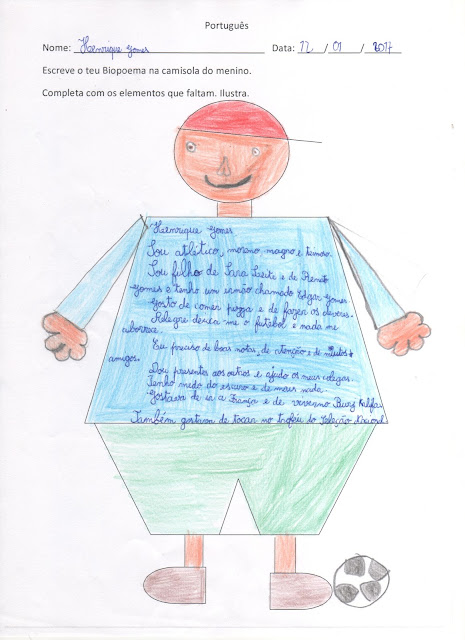 Português
Nome: Henrique Gomes Data: 12 / 01 / 2017
Escreve o teu Biopoema na camisola do menino.
Completa com os elementos que faltam. Ilustra.
Henrique Gomes
Sou atlético, moreno magro e
Sou filho de Sara Leite e de
Gomes e tenho um irmão chamado Edgar Gomes
Gosto de comer pizza e de fazer os deveres.
Alegre deixa-me o futebol e nada me
aborrece.
Eu preciso de boas notas, de atenção e de muitos
amigos.
Dou presentes aos outros e ajudo os meus colegas.
Tenho medo do escuro e de mais nada.
Gostava de ir a França e de viver no Burj Kalifa.
Também gostava de tocar no troféu da Seleção Nacional.